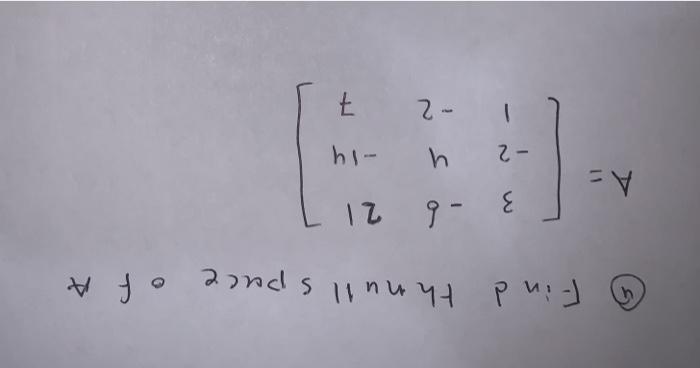 4 Find th null space of A
A = [ 3 -6 21
-2 4 -14
1 -2 7 ]